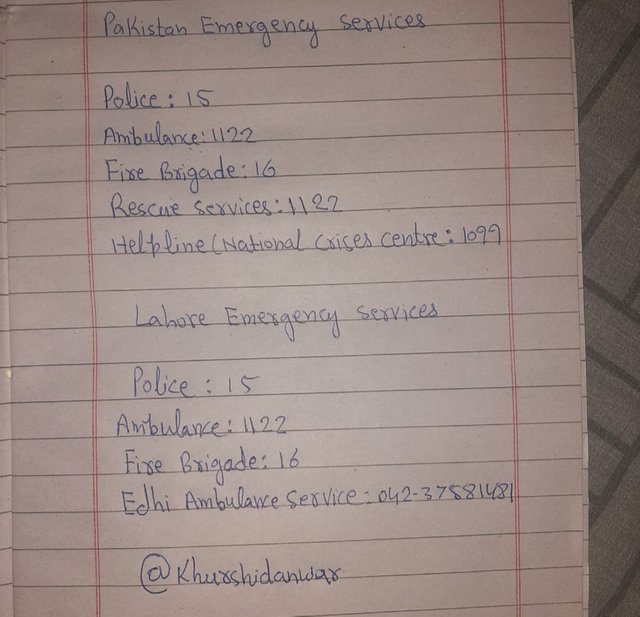 Pakistan Emergency Services
Police : 15
Ambulance: 1122
Fire Brigade: 16
Rescue Services: 1122
Helpline (National Crises centre: 1099
Lahore Emergency Services
Police : 15
Ambulance: 1122
Fire Brigade: 16
Edhi Ambulance Service: 042-37581481
@Khurshidanwar